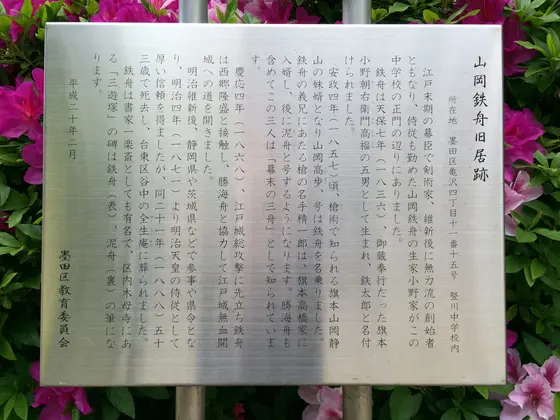 山岡鉄舟旧居跡
所在地 墨田区亀沢四丁目十一番十五号 竪川中学校内
江戸末期の幕臣で剣術家、維新後に無刀流の創始者
ともなり、侍従も勤めた山岡鉄舟の生家小野家がこの
中学校の正門の辺りにありました。
鉄舟は天保七年（一八三六）、御蔵奉行だった旗本
小野朝右衛門高福の五男として生まれ、鉄太郎と名付
けられました。
安政四年（一八五七）頃、槍術で知られる旗本山岡静
山の妹婿となり山岡高歩、号は鉄舟を名乗りました。
鉄舟の義兄にあたる槍の名手精一郎は、旗本高橋家に
入婿し、後に泥舟と号するようになります。勝海舟も
含めてこの三人は「幕末の三舟」として知られていま
す。
慶応四年（一八六八）、江戸城総攻撃に先立ち鉄舟
は西郷隆盛と接触し、勝海舟と協力して江戸城無血開
城への道を開きました。
明治維新後、静岡県や茨城県などで参事や県令とな
り、明治四年（一八七一）より明治天皇の侍従として
厚い信頼を得ましたが、同二十一年（一八八八）五十
三歳で死去し、台東区谷中の全生庵に葬られました。
鉄舟は書家一楽斎としても有名で、区内木母寺にあ
る「三遊塚」の碑は鉄舟（表）、泥舟（裏）の筆にな
ります。
平成二十年二月
墨田区教育委員会